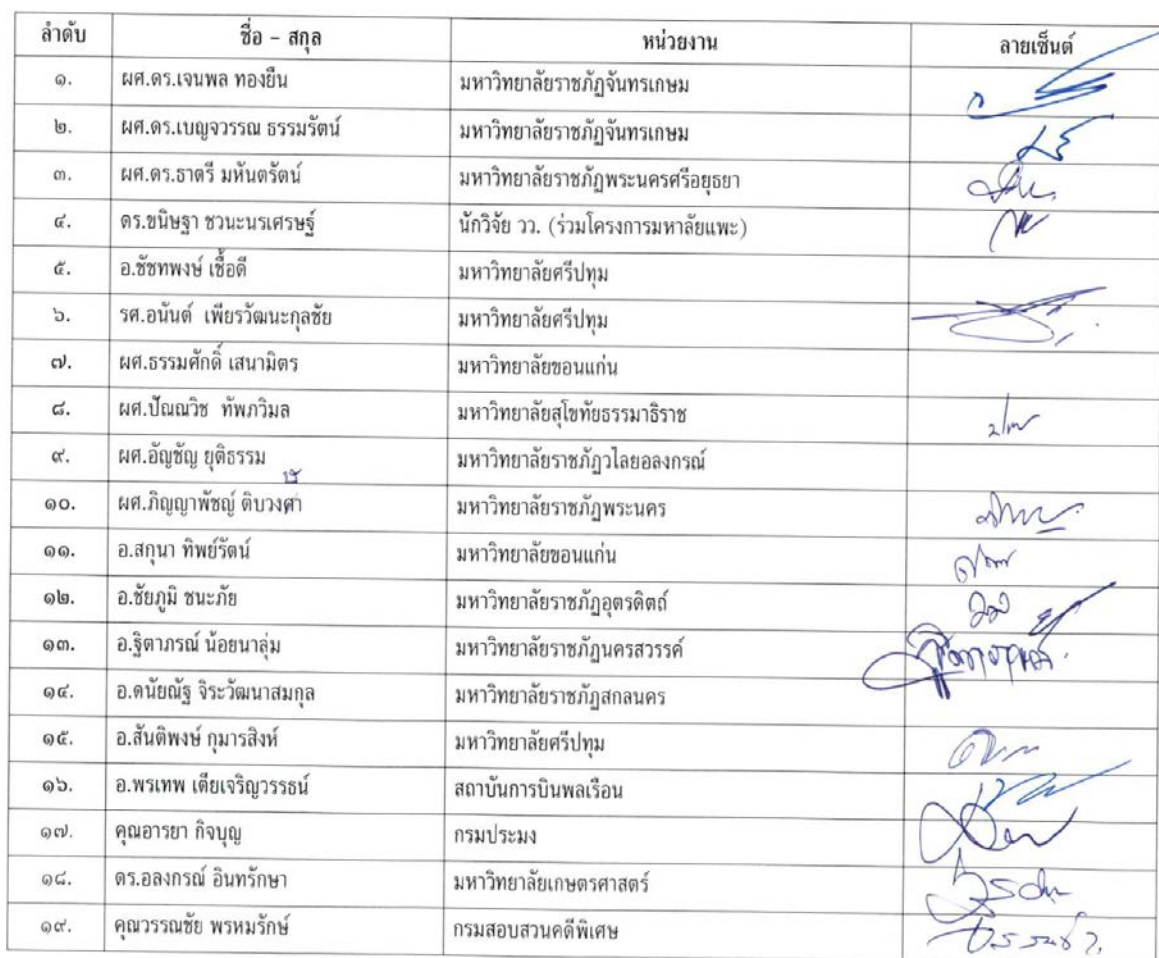 ลำดับ ชื่อ – สกุล หน่วยงาน ลายเซ็นต์
๑. ผศ.ดร.เจนพล ทองยืน มหาวิทยาลัยราชภัฏจันทรเกษม
๒. ผศ.ดร.เบญจวรรณ ธรรมรัตน์ มหาวิทยาลัยราชภัฏจันทรเกษม
๓. ผศ.ดร.ธาตรี มหันตรัตน์ มหาวิทยาลัยราชภัฏพระนครศรีอยุธยา
๔. ดร.ขนิษฐา ชวนะนรเศรษฐ์ นักวิจัย วว. (ร่วมโครงการมหาลัยแพะ)
๕. อ.ชัชทพงษ์ เชื้อดี มหาวิทยาลัยศรีปทุม
๖. รศ.อนันต์ เพียรวัฒนะกุลชัย มหาวิทยาลัยศรีปทุม
๗. ผศ.ธรรมศักดิ์ เสนามิตร มหาวิทยาลัยขอนแก่น
๘. ผศ.ปัณณวิช ทัพภวิมล มหาวิทยาลัยสุโขทัยธรรมาธิราช
๙. ผศ.อัญชัญ ยุติธรรม มหาวิทยาลัยราชภัฏวไลยอลงกรณ์
๑๐. ผศ.ภิญญาพัชญ์ ติบวงศา มหาวิทยาลัยราชภัฏพระนคร
๑๑. อ.สกุนา ทิพย์รัตน์ มหาวิทยาลัยขอนแก่น
๑๒. อ.ชัยภูมิ ชนะภัย มหาวิทยาลัยราชภัฏอุตรดิตถ์
๑๓. อ.ฐิตาภรณ์ น้อยนาลุ่ม มหาวิทยาลัยราชภัฏนครสวรรค์
๑๔. อ.ดนัยณัฐ จิระวัฒนาสมกุล มหาวิทยาลัยราชภัฏสกลนคร
๑๕. อ.สันติพงษ์ กุมารสิงห์ มหาวิทยาลัยศรีปทุม
๑๖. อ.พรเทพ เตียเจริญวรรธน์ สถาบันการบินพลเรือน
๑๗. คุณอารยา กิจบุญ กรมประมง
๑๘. ดร.อลงกรณ์ อินทรักษา มหาวิทยาลัยเกษตรศาสตร์
๑๙. คุณวรรณชัย พรหมรักษ์ กรมสอบสวนคดีพิเศษ